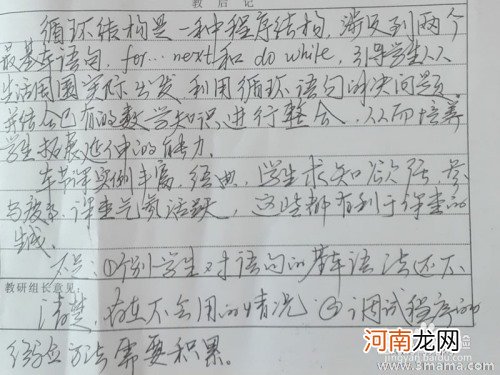 教后记
循环结构是一种程序结构，涉及到两个
最基本语句，for…next和do while，引导学生从
生活周围实际出发 利用循环语句解决问题.
并结合已有的数学知识进行整合，从而培养
学生拓展延伸的能力.
本节课实例丰富，经典，学生求知欲强，参
与较多，课堂气氛活跃，这些都有利于课堂的
生成.
不足：①个别学生对语句的基本语法还不
教研组长意见：
清楚，存在不会用的情况 ②，调试程序的
经验方法需要积累。
河南龙网
jingyan.baidu.com
www.3mama.com